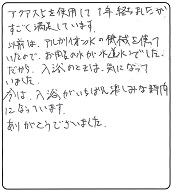 アクアス5を使用して1年経ちましたが
すごく満足しています。
以前は、アルカリイオンKの機械を使っ
ていたので、お風呂の水が水道水でした。
だから、入浴のときは、気になって
いました。
今は、入浴がいちばん楽しみな時間
になっています。
ありがとうございました。